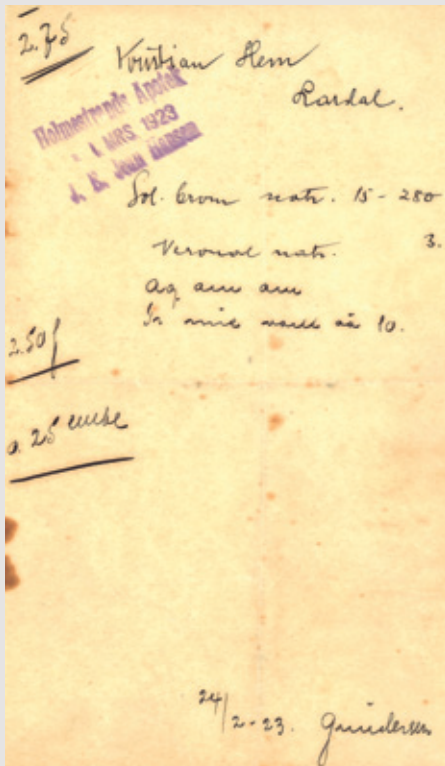 2.75
Kristian Hem
Lardal.
Holmestrands Apotek
1. MRS. 1923
J. E. Juul Hansen
Sol. brom natr. 15 - 280
Veronal natr. 3.
aq am am
2.50
0.25
24/2-23. Gundersen